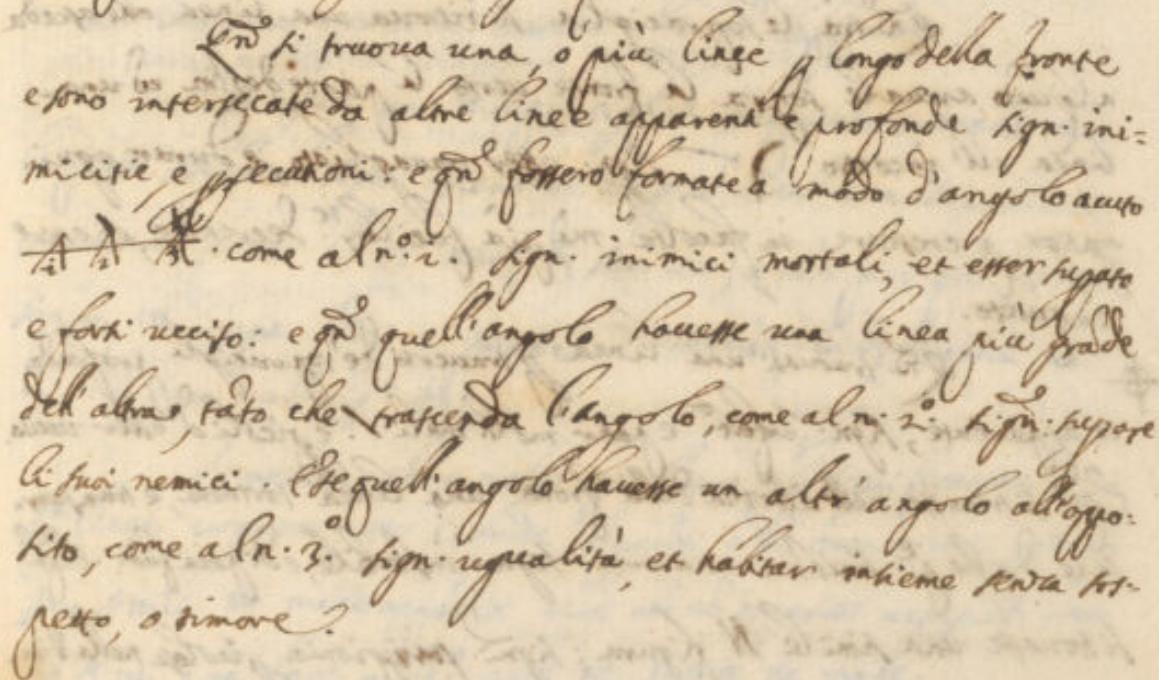 Qñ si truova una, o più linee p longo della fronte
e sono intersecate da altre linee apparenti e profonde sign. ini=
micitie, e psecutioni: e qñ fossero formate a modo d'angolo acuto
1 2 3 . come al n.º 1. sign. inimici mortali, et esser supato
e forsi ucciso: e qñ quell'angolo havesse una linea più grãde
dell'altra, tãto che trascenda l'angolo, come al n. 2.º sign: supare
li suoi nemici. E se quell'angolo havesse un altr'angolo all'oppo=
sito, come al n. 3.º sign. ugualità, et habitar insieme senza sos=
petto, o timore.